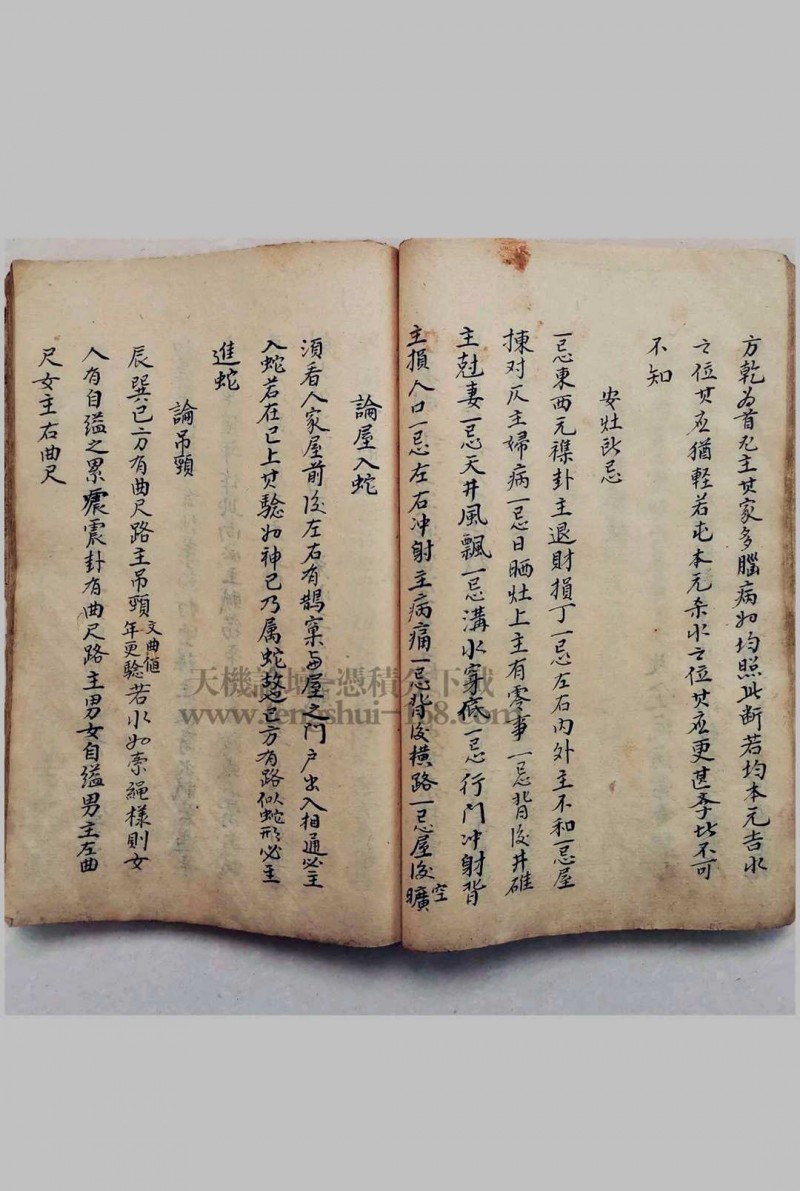 方乾為首尤主其家多腦病如均照此斷若均本元吉水
之位其应猶軽若屯本元杀水之位其应更甚李此不可
不知
安灶所忌
一忌東西元襍卦主退財損丁一忌左右内外主不和一忌屋
揀对仄主婦病一忌日晒灶上主有零事一忌背後井碓
主尅妻一忌天井風飄一忌溝水穿底一忌行門冲射背
主損人口一忌左右冲射主病痛一忌背後横路一忌屋後曠空
論屋入蛇
須看人家屋前後左右有鵲窠与屋之门户出入相通必主
入蛇若在巳上其騐如神巳乃属蛇故巳方有路似蛇形必主
進蛇
論吊頸
辰巽巳方有曲尺路主吊頸文曲值年更騐若水如索繩樣則女
人有自缢之累震卦有曲尺路主男女自缢男主左曲
尺女主右曲尺
天機論壇-憑積分下載